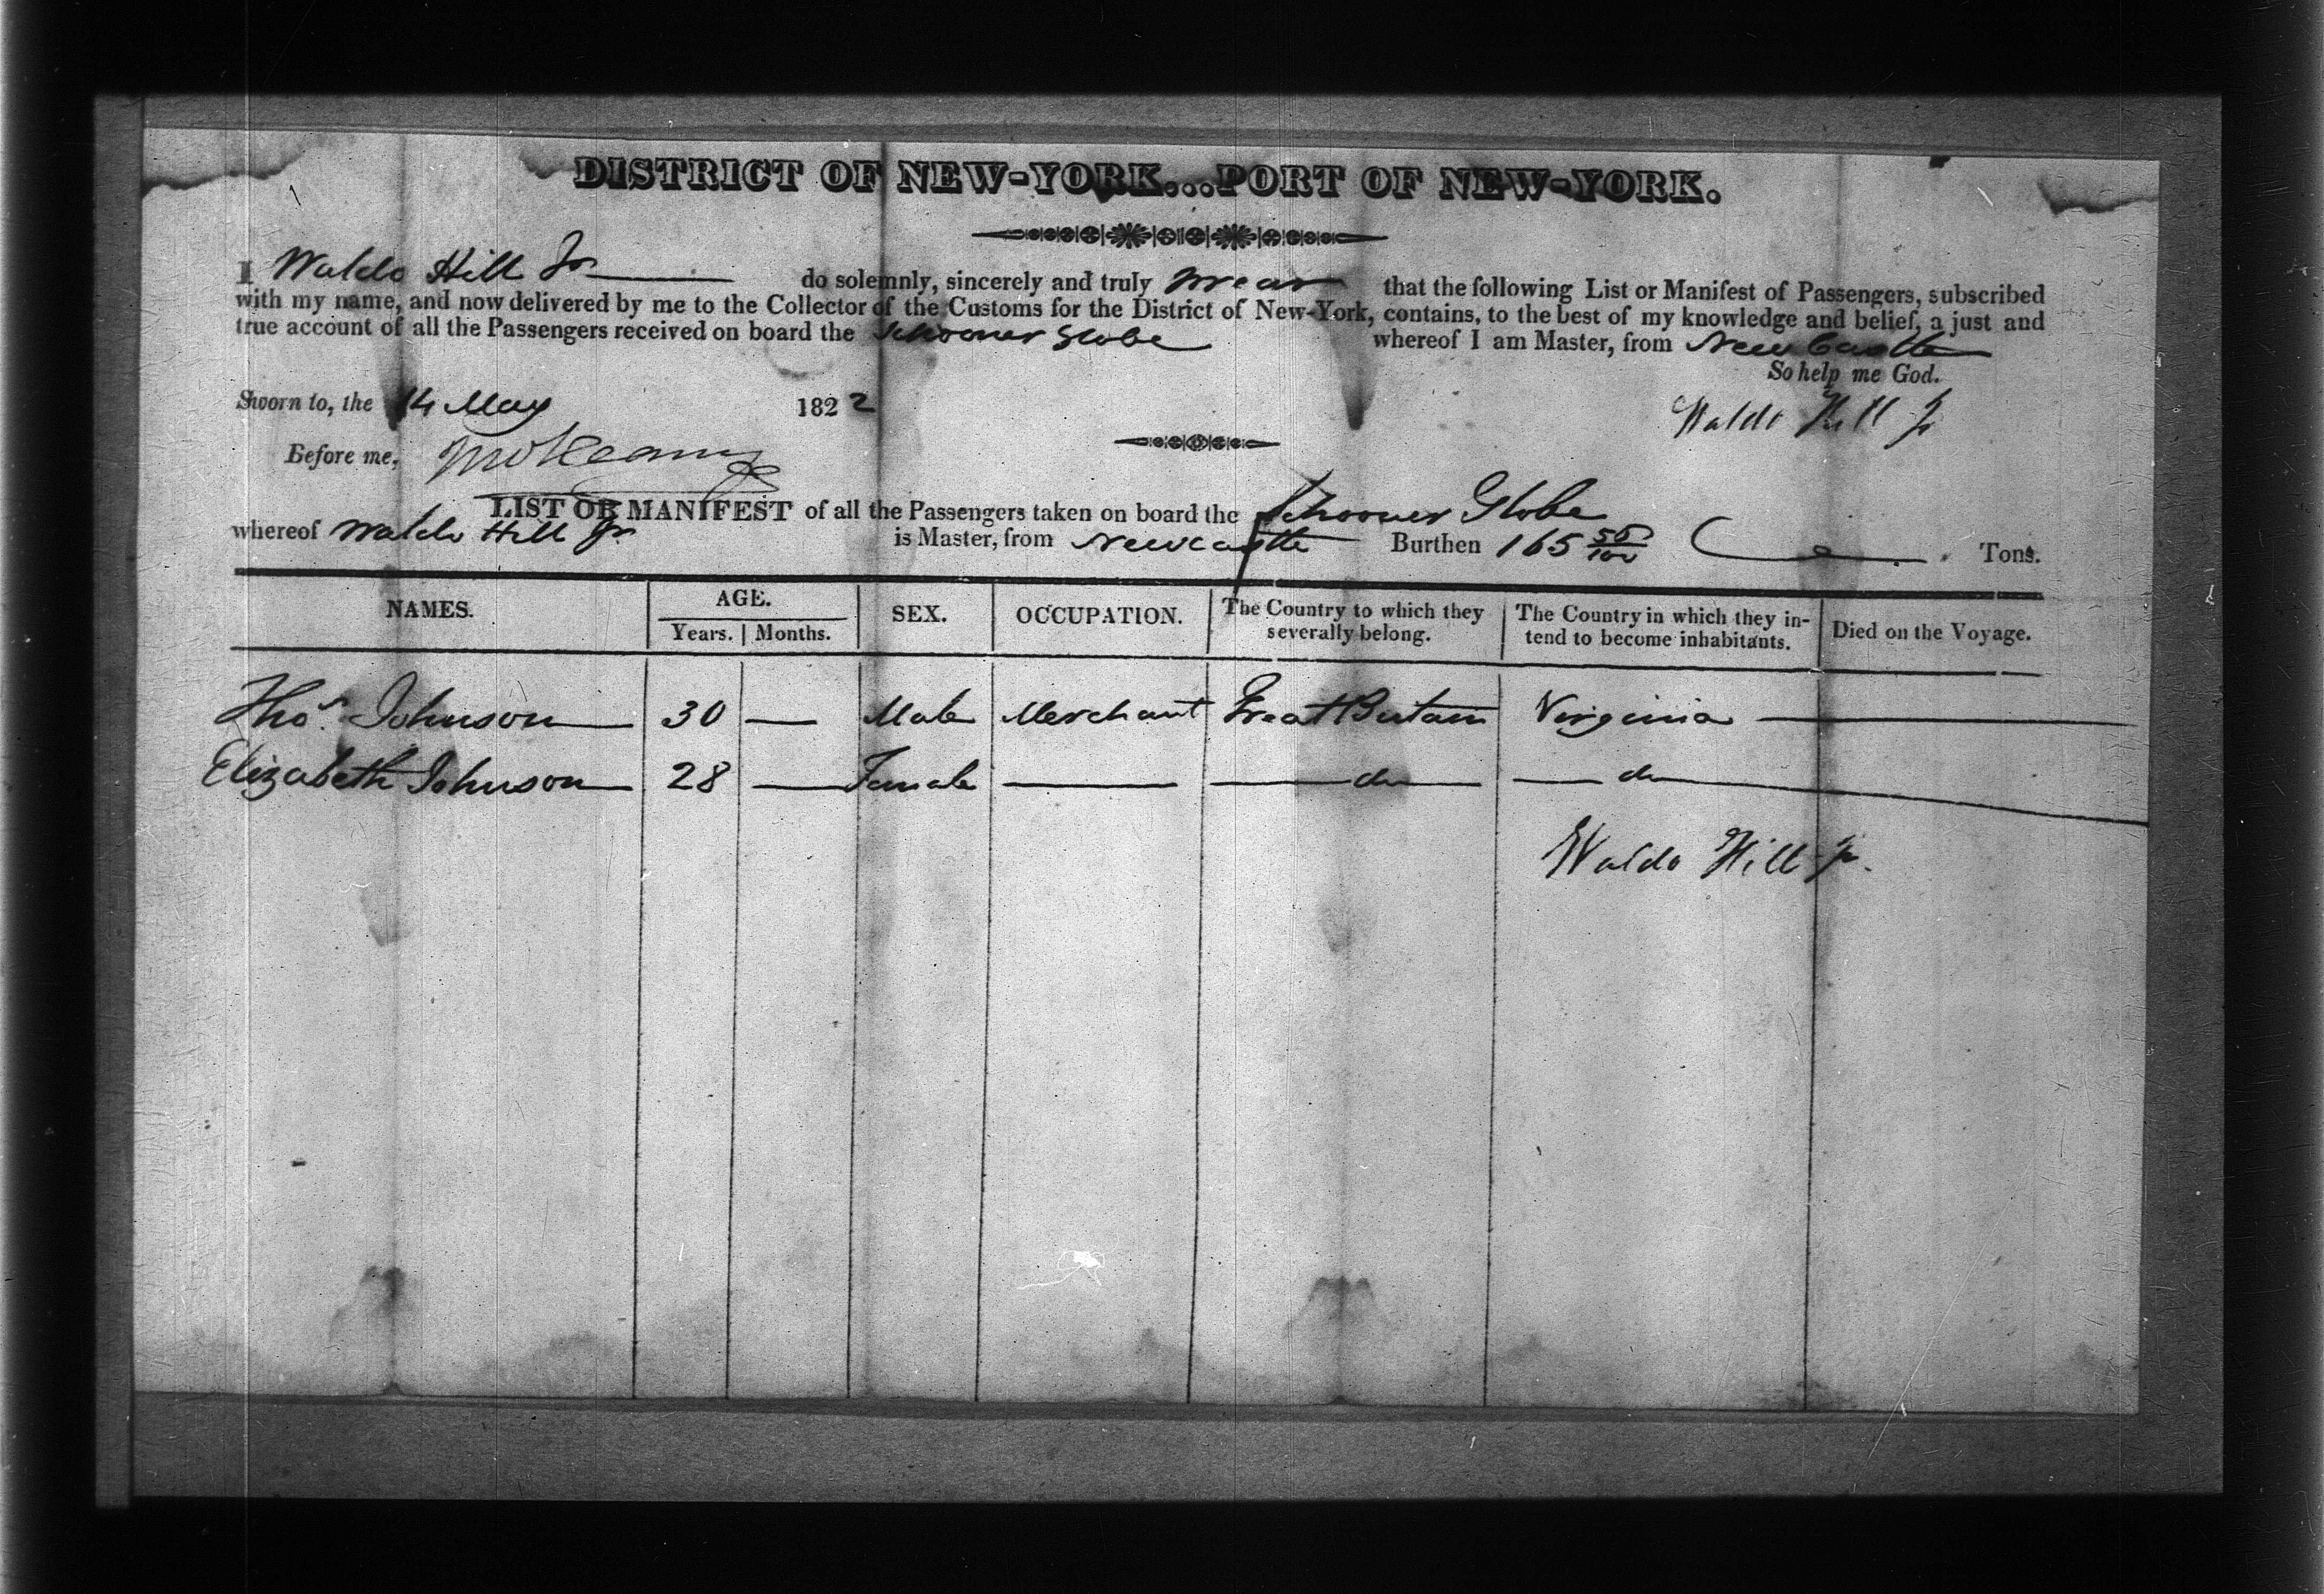 DISTRICT OF NEW-YORK...PORT OF NEW-YORK.
I Waldo Hill Jr do solemnly, sincerely and truly swear that the following List or Manifest of Passengers, subscribed
with my name, and now delivered by me to the Collector of the Customs for the District of New-York, contains, to the best of my knowledge and belief, a just and
true account of all the Passengers received on board the Schooner Globe whereof I am Master, from New Castle
So help me God.
Sworn to, the 14 May 1822
Waldo Hill Jr
Before me,
LIST OR MANIFEST of all the Passengers taken on board the Schooner Globe
whereof Waldo Hill Jr is Master, from Newcastle Burthen 165 56/100 Tons.
NAMES. AGE. Years. Months. SEX. OCCUPATION. The Country to which they severally belong. The Country in which they intend to become inhabitants. Died on the Voyage.
Thos. Johnson 30 — Male Merchant Great Britain Virginia —
Elizabeth Johnson 28 — Female — do do
Waldo Hill Jr.